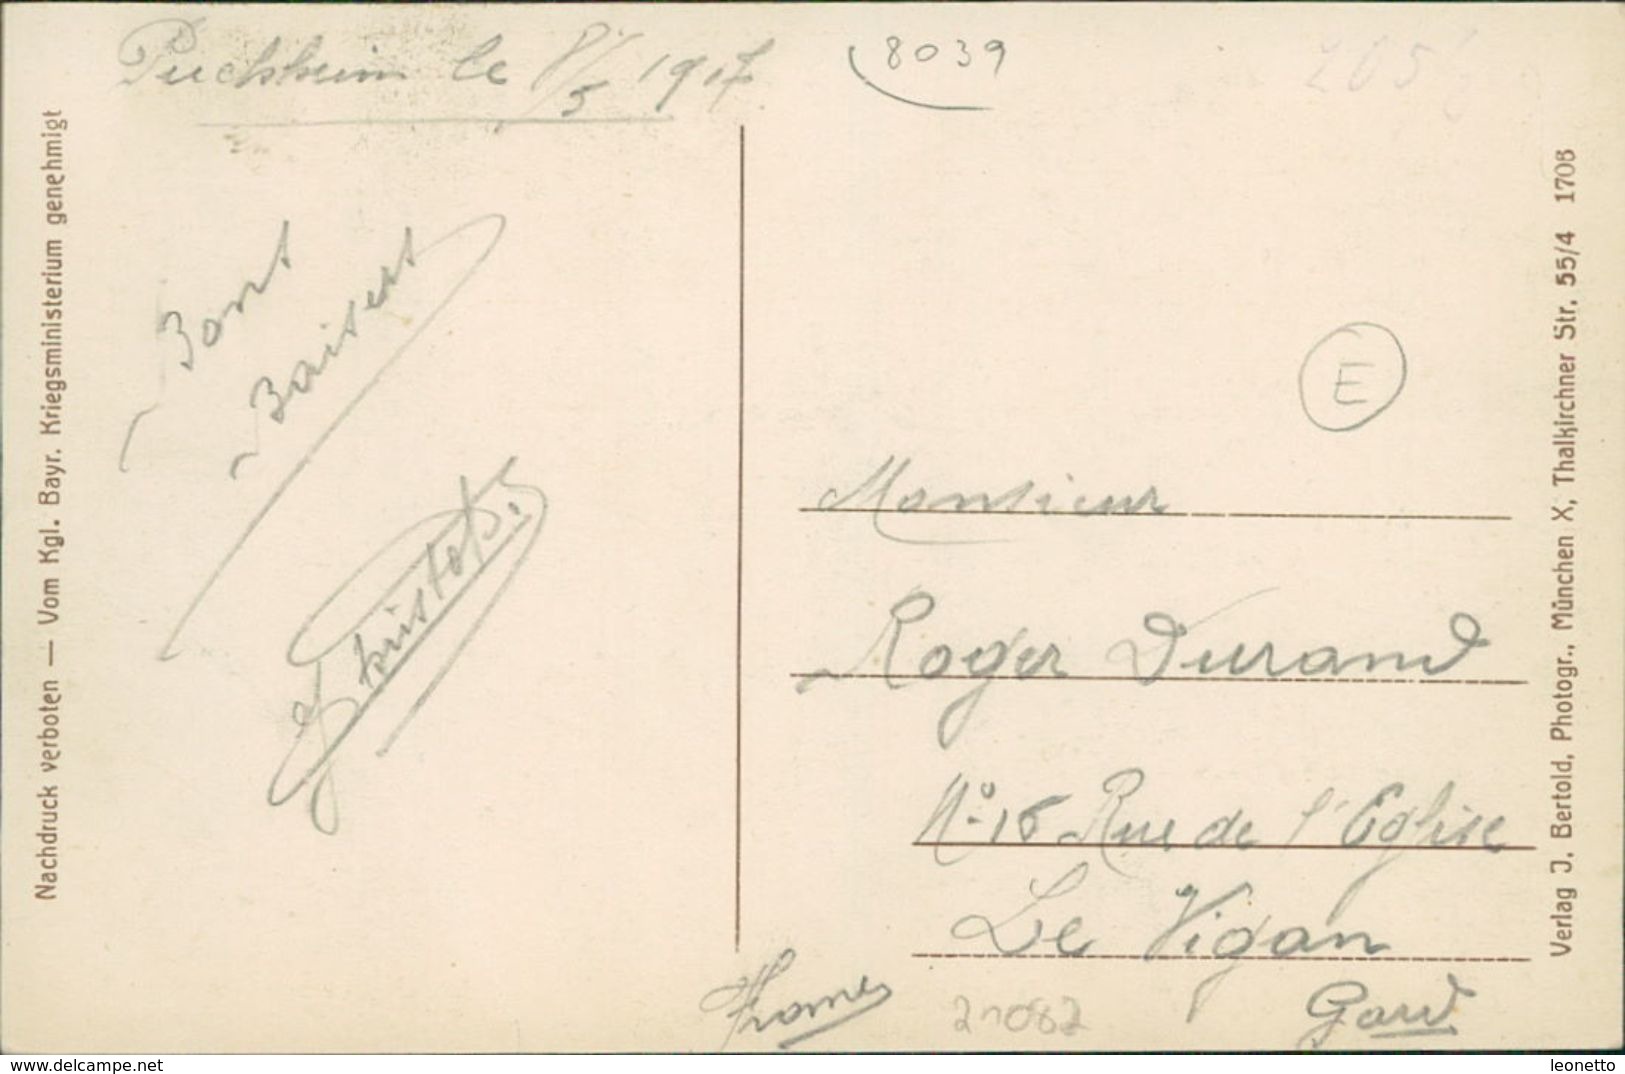 Puchheim le 8/5 1917
8039
205
Bons
Baisers
Nachdruck verboten — Vom Kgl. Bayr. Kriegsministerium genehmigt
E
Monsieur
Roger Durand
No 16 Rue de l'Eglise
Le Vigan
Gard
France
21082
Verlag J. Bertold, Photogr., München X, Thalkirchner Str. 55/4 1706
www.delcampe.net
leonetto